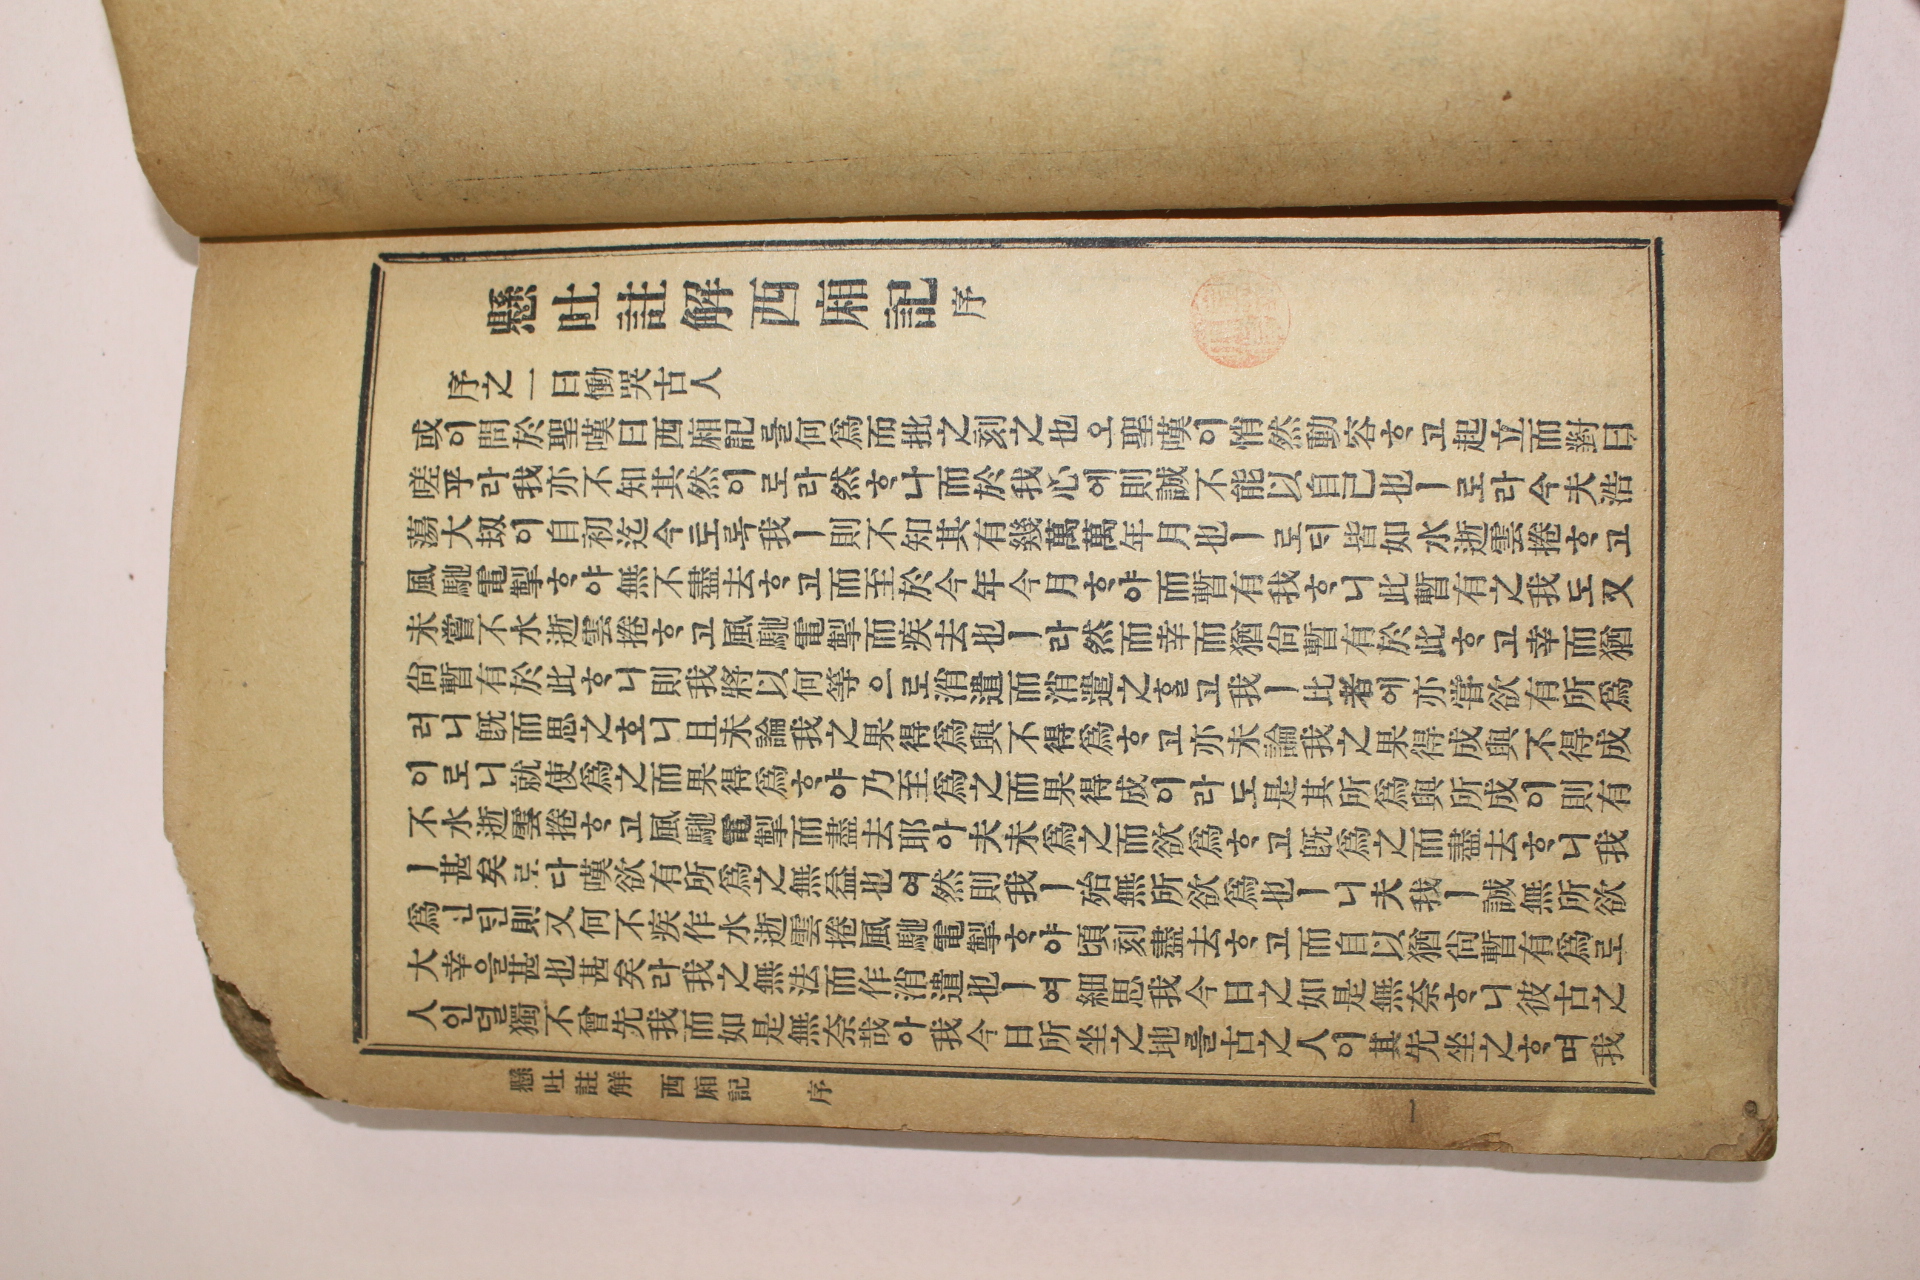 懸吐註解西廂記序
序之一曰慟哭古人
或이問於聖嘆曰西廂記를何爲而批之刻之也오聖嘆이悄然動容ᄒᆞ고起立而對曰
嗟乎라我亦不知其然이로라然ᄒᆞ나而於我心에則誠不能以自己也ㅣ로라今夫浩
蕩大劫이自初迄今토록我ㅣ則不知其有幾萬萬年月也ㅣ로ᄃᆡ皆如水逝雲捲ᄒᆞ고
風馳電掣ᄒᆞ야無不盡去ᄒᆞ고而至於今年今月ᄒᆞ야而暫有我ᄒᆞ니此暫有之我도又
未嘗不水逝雲捲ᄒᆞ고風馳電掣而疾去也ㅣ라然而幸而猶尙暫有於此ᄒᆞ고幸而猶
尙暫有於此ᄒᆞ니則我將以何等으로消遣而消遣之ᄒᆞᆯ고我ㅣ比者에亦嘗欲有所爲
러니旣而思之호니且未論我之果得爲與不得爲ᄒᆞ고亦未論我之果得成與不得成
이로니就使爲之而果得爲ᄒᆞ야乃至爲之而果得成이라도是其所爲與所成이則有
不水逝雲捲ᄒᆞ고風馳電掣而盡去耶아夫未爲之而欲爲ᄒᆞ고旣爲之而盡去ᄒᆞ니我
ㅣ甚矣로다嘆欲有所爲之無益也여然則我ㅣ殆無所欲爲也ㅣ니夫我ㅣ誠無所欲
爲신딘則又何不疾作水逝雲捲風馳電掣ᄒᆞ야頃刻盡去ᄒᆞ고而自以猶尙暫有爲로
大幸을甚也甚矣라我之無法而作消遣也ㅣ여細思我今日之如是無奈ᄒᆞ니彼古之
人인덜獨不曾先我而如是無奈哉아我今日所坐之地를古之人이其先坐之ᄒᆞ며我
懸吐註解 西廂記 序
一